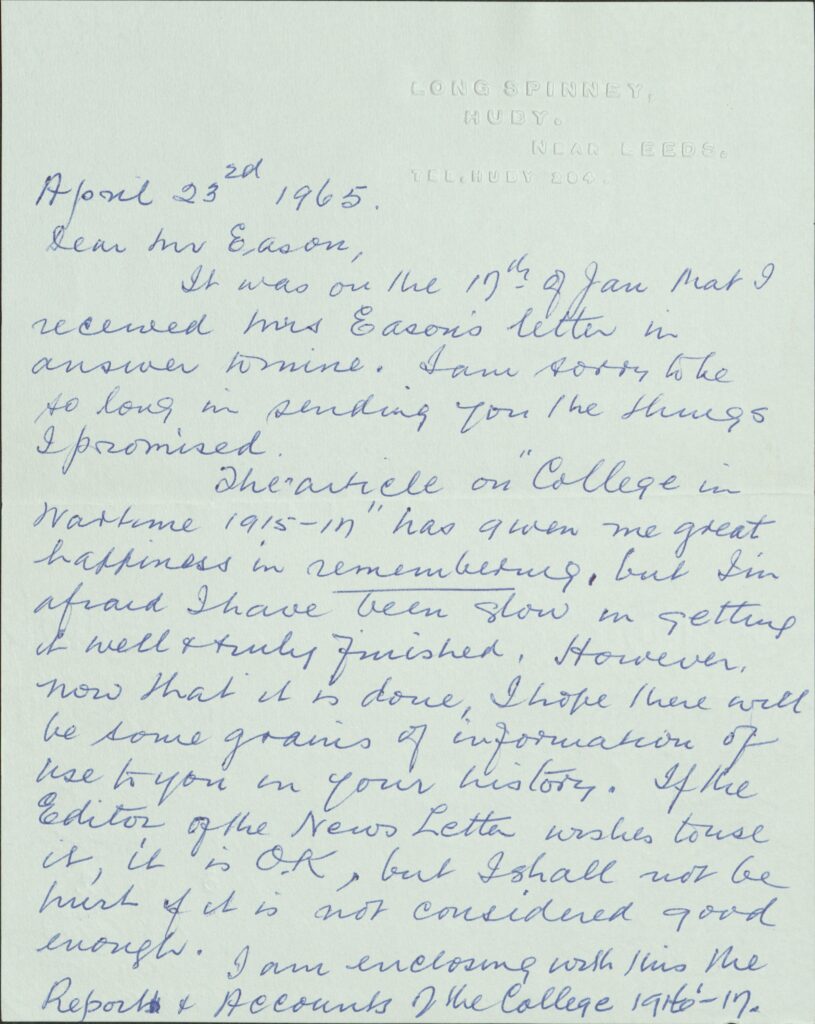 LONG SPINNEY,
HUBY.
NEAR LEEDS.
TEL. HUBY 204.
April 23rd 1965.
Dear Mr Eason,
It was on the 17th of Jan that I
received Mrs Eason's letter in
answer to mine. I am sorry to be
so long in sending you the things
I promised.
The article on "College in
Wartime 1915-17" has given me great
happiness in remembering, but I'm
afraid I have been slow in getting
it well & truly finished. However,
now that it is done, I hope there will
be some grains of information of
use to you in your history. If the
Editor of the News Letter wishes to use
it, it is O.K, but I shall not be
hurt if it is not considered good
enough.
I am enclosing with this the
Reports & Accounts of the College 1916-17.